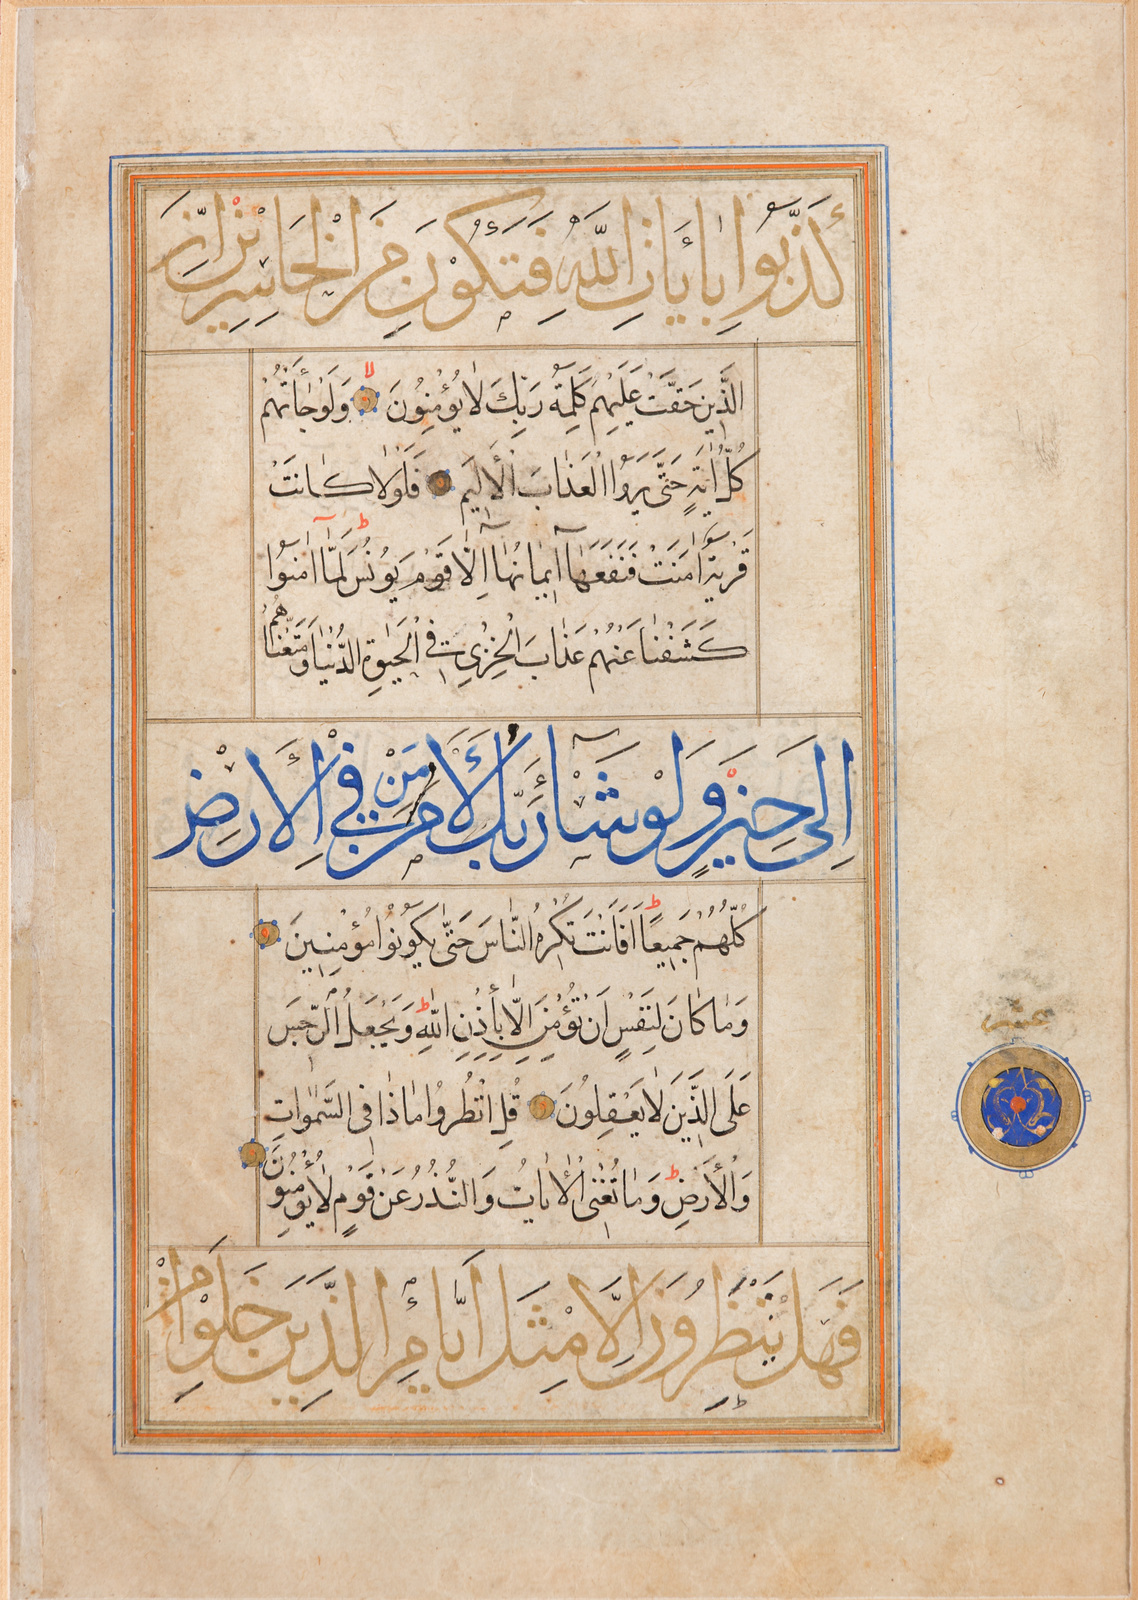 كَذَّبُوا بِاٰيَاتِ اللّٰهِ فَتَكُونَ مِنَ الْخَاسِرِينَ اِنَّ
الَّذِينَ حَقَّتْ عَلَيْهِمْ كَلِمَةُ رَبِّكَ لَا يُؤْمِنُونَ وَلَوْ جَاءَتْهُمْ
كُلُّ اٰيَةٍ حَتّٰى يَرَوُا الْعَذَابَ الْاَلِيمَ فَلَوْلَا كَانَتْ
قَرْيَةٌ اٰمَنَتْ فَنَفَعَهَا اِيمَانُهَا اِلَّا قَوْمَ يُونُسَ لَمَّا اٰمَنُوا
كَشَفْنَا عَنْهُمْ عَذَابَ الْخِزْيِ فِي الْحَيٰوةِ الدُّنْيَا وَمَتَّعْنَاهُمْ
اِلٰى حِينٍ وَلَوْ شَآءَ رَبُّكَ لَاٰمَنَ مَنْ فِي الْاَرْضِ
كُلُّهُمْ جَمِيعًا اَفَاَنْتَ تُكْرِهُ النَّاسَ حَتّٰى يَكُونُوا مُؤْمِنِينَ
وَمَا كَانَ لِنَفْسٍ اَنْ تُؤْمِنَ اِلَّا بِاِذْنِ اللّٰهِ وَيَجْعَلُ الرِّجْسَ
عَلَى الَّذِينَ لَا يَعْقِلُونَ قُلِ انْظُرُوا مَاذَا فِي السَّمٰوَاتِ
وَالْاَرْضِ وَمَا تُغْنِي الْاٰيَاتُ وَالنُّذُرُ عَنْ قَوْمٍ لَا يُؤْمِنُونَ
فَهَلْ يَنْتَظِرُونَ اِلَّا مِثْلَ اَيَّامِ الَّذِينَ خَلَوْا مِنْ